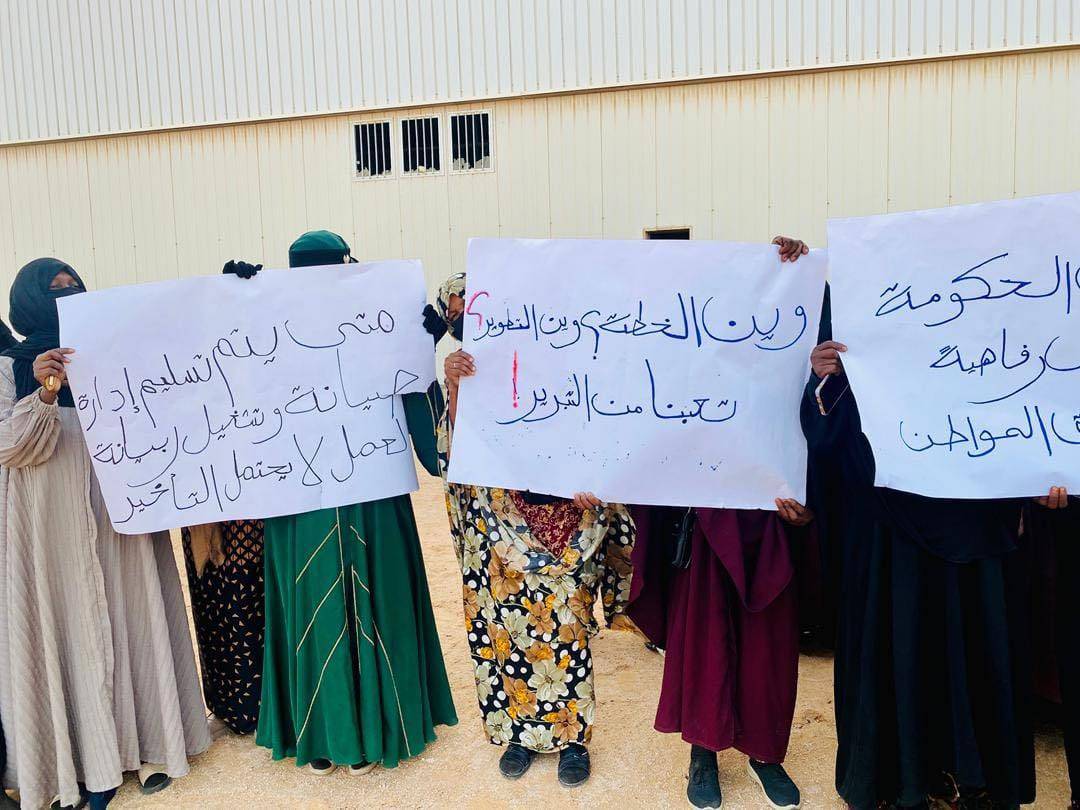 الحكومة
رفاهية
المواطن
وين الخطة؟ وين التطوير؟
تعبنا من التبرير!
متى يتم تسليم إدارة
صيانة وتشغيل ربيانة
العمل لا يحتمل التأخير